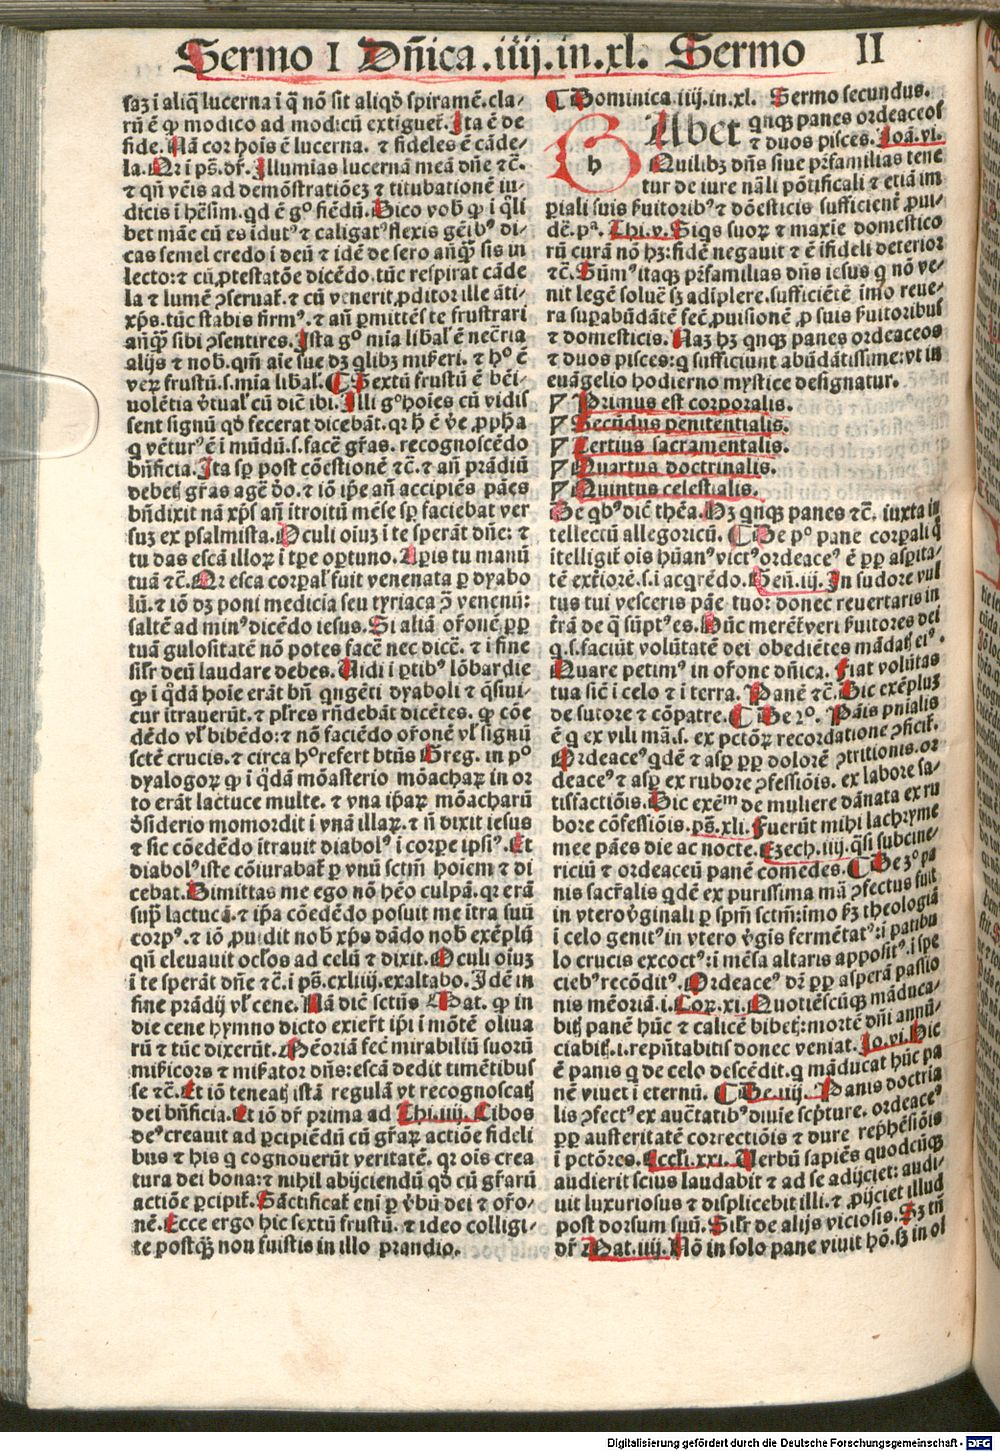 Sermo I Dñica .iiij. in .xl. Sermo II
saz i aliq̃ lucerna i q̃ nõ sit aliqđ spiramẽ. cla-
rũ ẽ ꝙ modico ad modicũ extiguet᷑. Ita ẽ de
fide. Nã cor hoĩs ẽ lucerna. ⁊ fideles ẽ cãde-
la. Un̄ i ps̃. dr̃. Illumias lucernã meã dñe ⁊c̃.
⁊ qñ vẽis ad demõstratiõez ⁊ titubationẽ iu-
dicis i hẽsim. qd ẽ gº fiẽdũ. Dico vob̃ ꝙ i q̃li
bet mãe cũ es idutꝰ ⁊ caligatꝰ flexis gẽibꝰ di-
cas semel credo i deũ ⁊ idẽ de sero añq̃ʒ sis in
lecto: ⁊ cũ ꝓtestatõe dicẽdo. tũc respirat cãde
la ⁊ lumẽ ꝯseruat᷑. ⁊ cũ venerit ꝓditor ille ãti-
xp̃s. tũc stabis firmꝰ. ⁊ añ ꝑmittẽs te frustrari
añq̃ʒ sibi ꝯsentires. Ista gº mia libal̃ ẽ nec̃ria
alijs ⁊ nob̃. qm̃ aĩe sue dʒ q̃libʒ mis̃eri. ⁊ hº ẽ
veꝝ frustũ. s. mĩa libal̃. ¶ Sextũ frustũ ẽ bẽi-
uolẽtia v̓tual̃ cũ dic̃ ibi. Illi gº hoĩes cũ vidis
sent signũ qđ fecerat dicebãt. qꝛ h̃ ẽ v̓e ꝓpha
q vẽturꝰ ẽ i mũdũ. s. facẽ gr̃as. recognoscẽdo
bñficia. Ita sꝑ post cõestionẽ ⁊c̃. ⁊ añ prãdiũ
debetꝭ gr̃as agẽ đo. ⁊ iõ ip̃e añ accipiẽs pães
bñdixit nã xp̃s añ itroitũ mẽse sꝑ faciebat ver
suʒ ex psalmista. Oculi oĩuʒ i te sperãt dñe: ⁊
tu das escã illoꝝ i tp̃e oꝑtuno. Aꝑis tu manũ
tuã ⁊c̃. Qꝛ esca corꝑal̃ fuit venenata ꝑ dyabo
lũ. ⁊ iõ dʒ poni medicia seu tyriaca ꝯ̃ venenũ:
saltẽ ad minꝰ dicẽdo iesus. Si aliã or̃onẽ ꝓp̃
tuã gulositatẽ nõ potes facẽ nec dic̃e. ⁊ i fine
sil̃r deũ laudare debes. Uidi i ꝑtibꝰ lõbardie
ꝙ i q̃dã hoĩe erãt bñ qngẽti dyaboli ⁊ q̃siui-
cur itrauerũt. ⁊ pl̃res rñdebãt dicẽtes. ꝙ cõe
dẽdo vl̃ bibẽdo: ⁊ nõ faciẽdo or̃onẽ vl̃ signũ
sctẽ crucis. ⁊ circa hº refert btũs Greg. in pº
dyalogoꝝ ꝙ i q̃dã mõasterio mõachaꝝ in or
to erãt lactuce multe. ⁊ vna ip̃aꝝ mõacharũ
đsiderio momordit i vnã illaꝝ. ⁊ ñ dixit iesus
⁊ sic cõedẽdo itrauit diabolꝰ i corꝑe ipsiꝰ. Et
diabolꝰ iste cõiurabat᷑ ꝑ vnũ sctm̃ hoĩem ⁊ di
cebat. Dimittas me ego nõ hẽo culpã. qꝛ erã
sup̃ lactucã. ⁊ ip̃a cõedẽdo posuit me itra suũ
corpꝰ. ⁊ iõ ꝓuidit nob̃ xp̃s dãdo nob̃ exẽplũ
qñ eleuauit oc̃los ad celũ ⁊ dixit. Oculi oĩuʒ
i te sperãt dñe ⁊c̃. i ps̃. cxliiij. exaltabo. Idẽ in
fine prãdij vl̃ cene. Nã dic̃ sctũs Mat. ꝙ in
die cene hymno dicto exier̃t ip̃i i mõtẽ oliua
rũ ⁊ tũc dixerũt. Mẽoriã fec̃ mirabiliũ suorũ
mis̃icors ⁊ mis̃ator dñs: escã dedit timẽtibus
se ⁊c̃. Et iõ teneatꝭ istã regulã vt recognoscatꝭ
dei bñficia. Et iõ dr̃ prima ad Thi. iiij. Cibos
deꝰ creauit ad ꝑcipiẽdũ cũ gr̃aꝝ actiõe fideli
bus ⁊ his q cognouerũt veritatẽ. qꝛ oĩs crea
tura dei bona: ⁊ nihil abijciendũ qđ cũ gr̃arũ
actiõe ꝑcipit᷑. Sãctificat᷑ eni ꝑ v̓bũ dei ⁊ or̃o-
nẽ. Ecce ergo hic sextũ frustũ. ⁊ ideo colligi-
te postq̃ʒ non fuistis in illo prandio.
¶ Dominica .iiij. in .xl. Sermo secundus.
HAbet qnqʒ panes ordeaceos
⁊ duos pisces. Ioã. vi.
Quilibʒ dñs siue pr̃familias tene
tur de iure nãli põtificali ⁊ etiã im
ꝑiali suis ẜuitoribꝰ ⁊ dõesticis sufficient᷑ ꝓui-
dẽ. pª. Thi. v. Siqs suoꝝ ⁊ maxie domestico
rũ curã nõ hʒ: fidẽ negauit ⁊ ẽ ifideli deterior
⁊c̃. Sũmꝰ itaqʒ pr̃familias dñs iesus q nõ ve-
nit legẽ soluẽ sʒ adiplere. sufficiẽtẽ imo reue-
ra suꝑabũdãtẽ fec̃ ꝓuisionẽ ꝓ suis ẜuitoribus
⁊ domesticis. Nãʒ hʒ qnqʒ panes ordeaceos
⁊ duos pisces: q sufficiunt abũdãtissime: vt in
euãgelio hodierno mystice designatur.
Primus est corporalis.
Secũdus penitentialis.
Tertius sacramentalis.
Quartus doctrinalis.
Quintus celestialis.
De qbꝰ dic̃ thẽa. Hʒ qnqʒ panes ⁊c̃. iuxta in
tellectũ allegoricũ. ¶ De pº pane corꝑali q̃
itelligit᷑ oĩs hũanꝰ victꝰ ordeaceꝰ ẽ ꝑp̃ aspita-
tẽ ext̃iorẽ. s. i acqrẽdo. Geñ. iij. In sudore vul
tus tui vesceris pãe tuo: donec reuertaris in
t̃rã de q̃ sũptꝰ es. Hũc merẽt᷑ veri ẜuitores dei
q. s. faciũt volũtatẽ dei obediẽtes mãdatꝭ eiꝰ.
Quare petimꝰ in or̃onc dñica. Fiat volũtas
tua sic̃ i celo ⁊ i terra. Panẽ ⁊c̃. Hic exẽpluʒ
de sutore ⁊ cõpatre. ¶ De 2º. Pãis pnialis
ẽ q ex vili mã. s. ex pctõꝝ recordatione ꝯficit᷑.
Ordeaceꝰ qdẽ ⁊ asꝑ ꝓp̃ dolorẽ ꝯtritionis. or
deaceꝰ ⁊ asꝑ ex rubore ꝯfessiõis. ex labore sa-
tisfactiõis. Hic exẽm de muliere dãnata ex ru
bore cõfessiõis. ps̃. xli. Fuerũt mihi lachryme
mee pães die ac nocte. Ezech. iiij. q̃si subcine-
riciũ ⁊ ordeaceũ panẽ comedes. ¶ De 3º pa
nis sacr̃alis qdẽ ex purissima mã ꝯfectus fuit
in vtero v̓ginali ꝑ spm̃ sctm̃: imo ẜʒ theologiã
i celo genitꝰ in vtero v̓gis fermẽtatꝰ: i patibu
lo crucis excoctꝰ: i mẽsa altaris appositꝰ. i spe
ciebꝰ recõditꝰ. Ordeaceꝰ dr̃ ꝓp̃ asperã passio
nis mẽoriã. i. Coꝝ. xi. Quotiẽscũqʒ mãduca-
bitꝭ panẽ hũc ⁊ calicẽ bibetꝭ: mortẽ dñi annũ-
ciabitꝭ. i. rep̃ñtabitis donec veniat. Io. vi. Hic
ẽ panis q de celo descẽdit. q mãducat hũc pa
nẽ viuet i eternũ. ¶ De. iiij. Panis doctria
lis ꝯfectꝰ ex auc̃tatibꝰ diuie scp̃ture. ordeaceꝰ
ꝓp̃ austeritatẽ correctiõis ⁊ dure rep̃hẽsiõis
i pctõres. Eccli. xxi. Uerbũ sapiẽs quodcũqʒ
audierit scius laudabit ⁊ ad se adijciet: audi-
uit luxuriosus ⁊ displicebit illi. ⁊ ꝓijciet illud
post dorsum suũ. Sil̃r de alijs viciosis. Sʒ tñ
dr̃ Mat. iiij. Nõ in solo pane viuit hõ. sʒ in oĩ
Digitalisierung gefördert durch die Deutsche Forschungsgemeinschaft - DFG